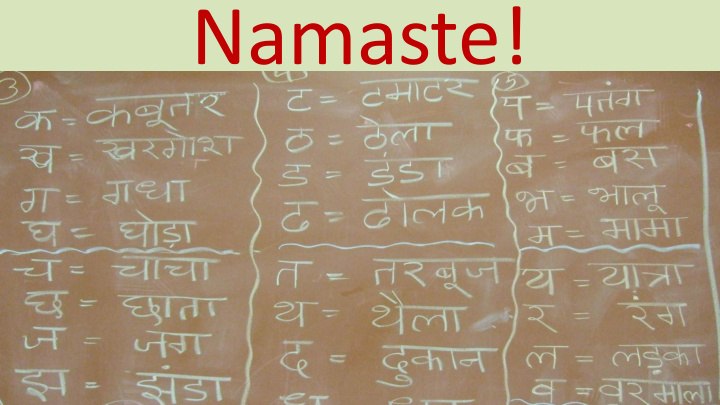 Namaste!
3
क = कबूतर
ख = खरगोश
ग = गधा
घ = घोड़ा
च = चाचा
छ = छाता
ज = जग
झ = झंडा
ट = टमाटर
ठ = ठेला
ड = डंडा
ढ = ढोलक
त = तरबूज
थ = थैला
द = दुकान
5
प = पतंग
फ = फल
ब = बस
भ = भालू
म = मामा
य = यात्रा
र = रंग
ल = लड़का
व = वरमाला